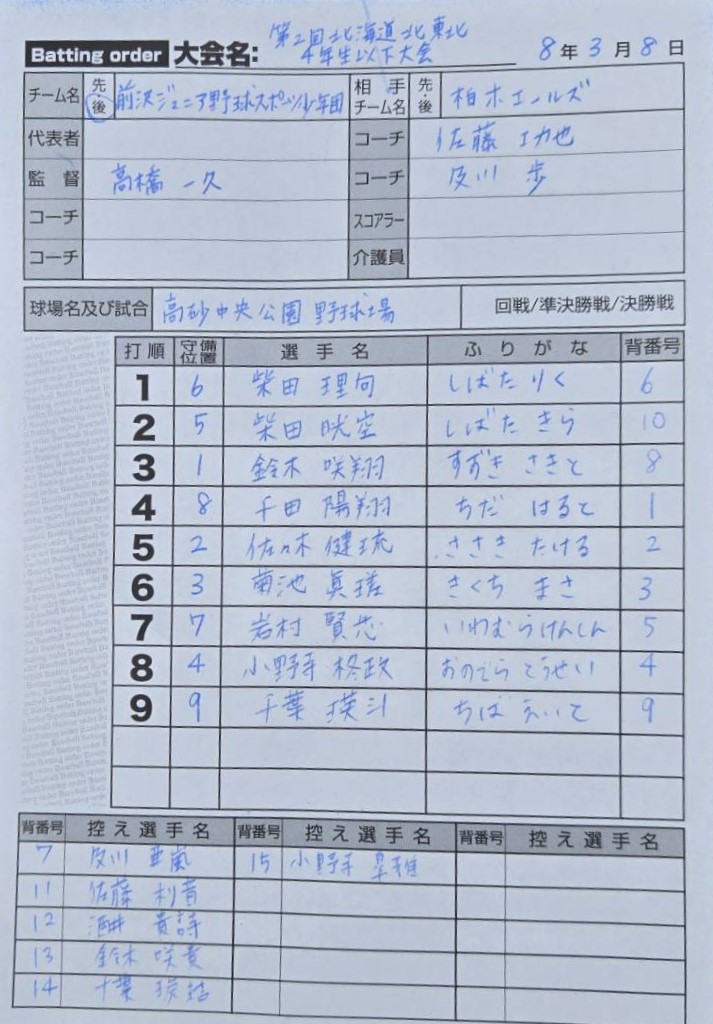 第2回北海道北東北
Batting order 大会名: 4年生以下大会 8年3月8日
チーム名 先・後 前沢ジュニア野球スポーツ少年団 相手チーム名 先・後 柏木エールズ
代表者 コーチ 佐藤 功也
監督 高橋 一久 コーチ 及川 歩
コーチ スコアラー
コーチ 介護員
球場名及び試合 高砂中央公園 野球場 回戦/準決勝戦/決勝戦
打順 守備位置 選手名 ふりがな 背番号
1 6 柴田 理句 しばた りく 6
2 5 柴田 晄空 しばた きら 10
3 1 鈴木 咲翔 すずき さきと 8
4 8 千田 陽翔 ちだ はると 1
5 2 佐々木 健琉 ささき たける 2
6 3 菊池 眞瑳 きくち まさ 3
7 7 岩村 賢志 いわむらけんしん 5
8 4 小野寺 柊政 おのでら とうせい 4
9 9 千葉 瑛斗 ちば えいと 9
背番号 控え選手名 背番号 控え選手名 背番号 控え選手名
7 及川 亜嵐 15 小野寺
11 佐藤 利貴
12 酒井 貴詩
13 鈴木 咲貴
14 千葉